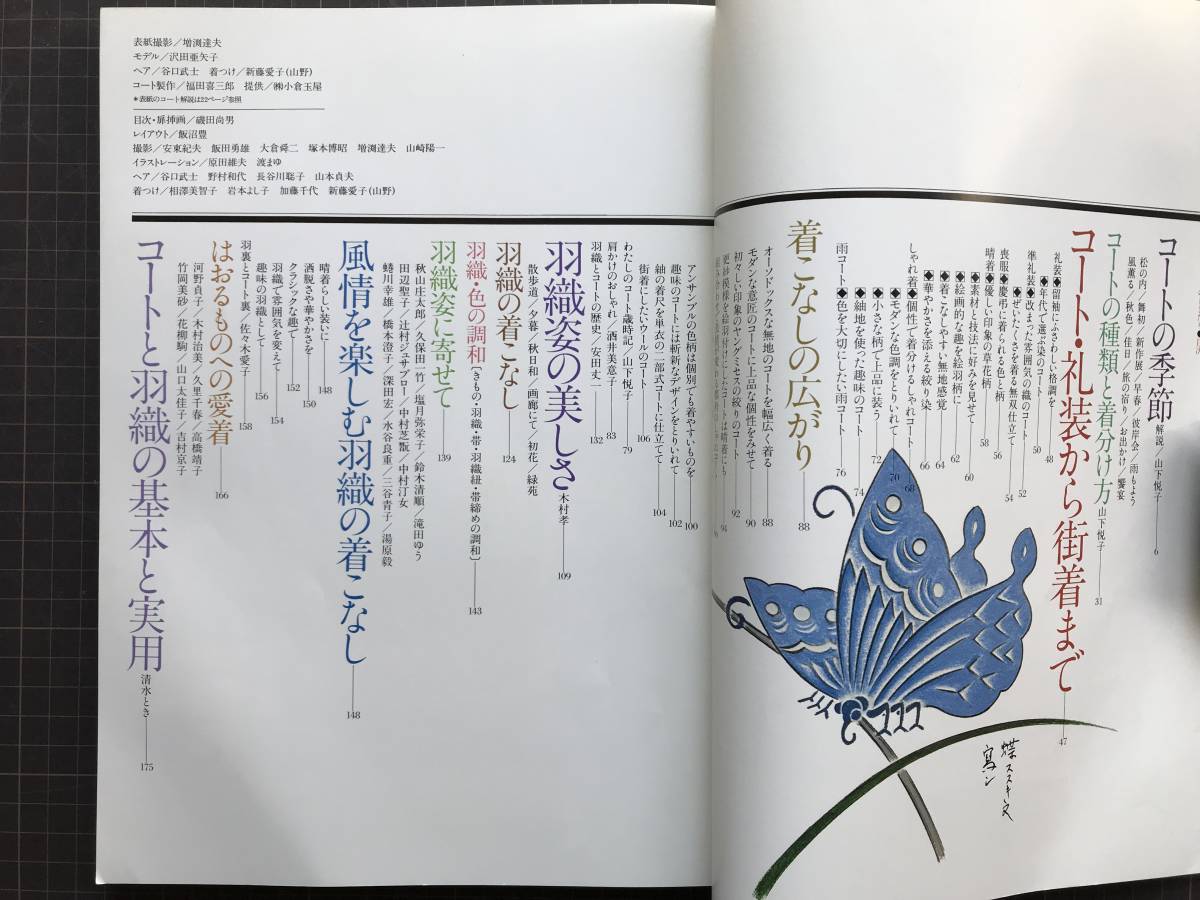 コートの季節 解説／山下悦子 6
松の内／舞初／新作展／早春／彼岸会／雨もよう
風薫る／秋色／佳日／旅の宿り／お出かけ／饗宴
コートの種類と着分け方 山下悦子 31
コート・礼装から街着まで 47
礼装◆留袖にふさわしい格調を 48
◆年代で選ぶ染のコート 50
準礼装◆改まった雰囲気の織のコート 52
◆ぜいたくさを着る無双仕立て 54
喪服◆慶弔に着られる色と柄 56
晴着◆優しい印象の草花柄 58
◆素材と技法に好みを見せて 60
◆絵画的な趣を絵羽柄に 62
◆着こなしやすい無地感覚 64
◆華やかさを添える絞り染 66
しゃれ着◆個性で着分けるしゃれコート 68
◆モダンな色調をとりいれて 70
◆小さな柄で上品に装う 72
◆紬地を使った趣味のコート 74
雨コート◆色を大切にしたい雨コート 76
着こなしの広がり 88
オーソドックスな無地のコートを幅広く着る 88
モダンな意匠のコートに上品な個性をみせて 90
初々しい印象のヤングミセスの絞りのコート 92
更紗模様を絵羽付けにしたコートは晴着にも 94
蝶ススキ文
写シ
表紙撮影／増渕達夫
モデル／沢田亜矢子
ヘア／谷口武士 着つけ／新藤愛子(山野)
コート製作／福田喜三郎 提供／㈱小倉玉屋
＊表紙のコート解説は22ページ参照
目次・扉挿画／磯田尚男
レイアウト／飯沼豊
撮影／安東紀夫 飯田勇雄 大倉舜二 塚本博昭 増渕達夫 山崎陽一
イラストレーション／原田維夫 渡まゆ
ヘア／谷口武士 野村和代 長谷川聡子 山本貞夫
着つけ／相澤美智子 岩本よし子 加藤千代 新藤愛子(山野)
アンサンブルの色柄は個別でも着やすいものを 100
趣味のコートには斬新なデザインをとりいれて 102
紬の着尺を単衣の二部式コートに仕立てて 104
街着にしたいウールのコート 106
わたしのコート歳時記／山下悦子 79
肩かけのおしゃれ／酒井美意子 83
羽織とコートの歴史／安田丈一 132
羽織姿の美しさ 木村孝 109
散歩道／夕暮／秋日和／画廊にて／初花／緑苑
羽織の着こなし 124
羽織・色の調和〔きもの・羽織・帯・羽織紐・帯締めの調和〕 143
羽織姿に寄せて 139
秋山庄太郎／久保田一竹／塩月弥栄子／鈴木清順／滝田ゆう
田辺聖子／辻村ジュサブロー／中村芝翫／中村汀女
蜷川幸雄／橋本澄子／深田宏／水谷良重／三谷青子／湯原毅
風情を楽しむ羽織の着こなし 148
晴着らしい装いに 148
洒脱さや華やかさを 150
クラシックな趣で 152
羽織で雰囲気を変えて 154
趣味の羽織として 156
羽裏とコート裏／佐々木愛子 158
はおるものへの愛着 166
河野貞子／木村治美／久里千春／高橋靖子
竹岡美砂／花柳駒／山口太佳子／吉村京子
コートと羽織の基本と実用 清水とき 175